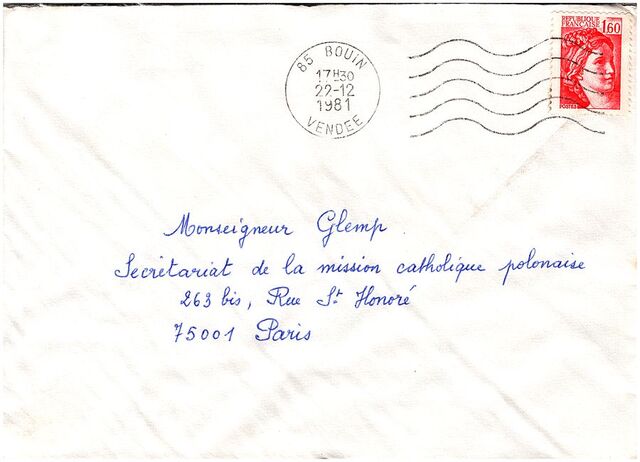 85 BOUIN
17H30
22-12
1981
VENDEE
REPUBLIQUE
FRANCAISE
1,60
POSTES
Monseigneur Glemp
Secrétariat de la mission catholique polonaise
263 bis, Rue St Honoré
75001 Paris